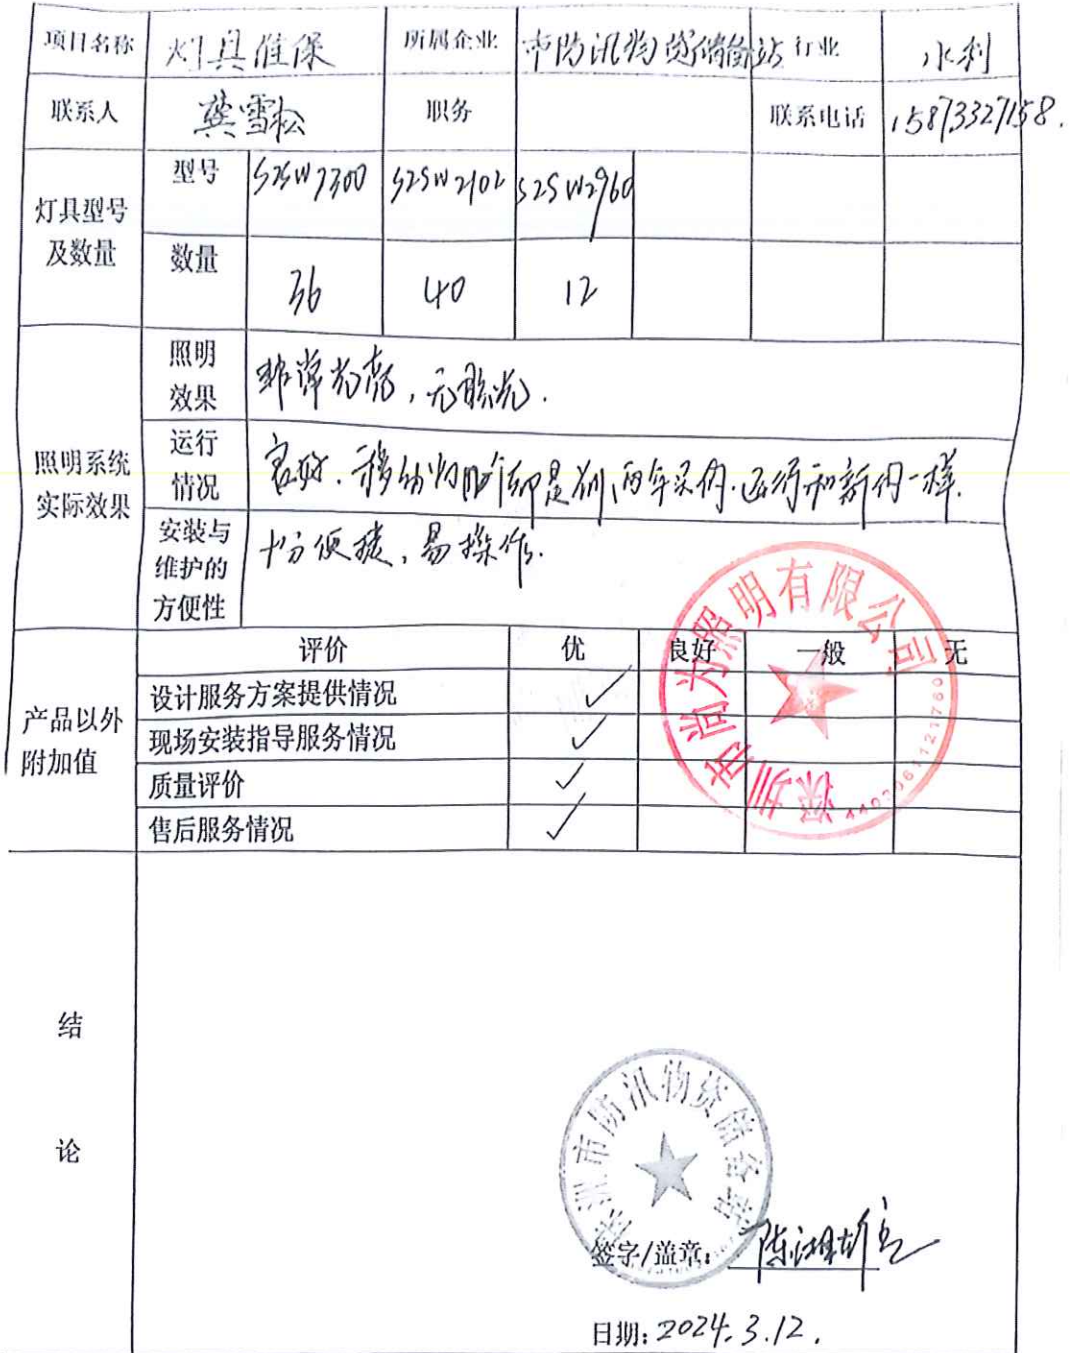 项目名称 灯具维保 所属企业 市防汛物资储备站 行业 水利
联系人 龚雪松 职务 联系电话 15873327158.
灯具型号及数量 型号 SZSW7300 SZSW2102 SZSW2960
数量 36 40 12
照明系统实际效果 照明效果 非常光亮,无眩光.
运行情况 良好.移动灯
是前两年采购.运行和新的一样.
安装与维护的方便性 十分便捷,易操作.
产品以外附加值 评价 优 良好 一般 无
设计服务方案提供情况 ✓
现场安装指导服务情况 ✓
质量评价 ✓
售后服务情况 ✓
深圳市尚为照明有限公司
结论
市防汛物资储备站
签字/盖章:
日期:2024.3.12.